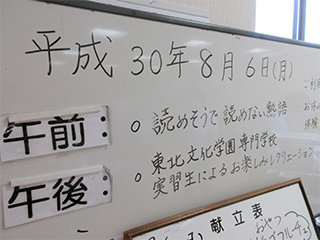 平成30年8月6日(月)
午前: ○ 読めそうで読めない熟語
午後: ○ 東北文化学園専門学校
実習生によるお楽しみレクリエーション
献立表
おやつ